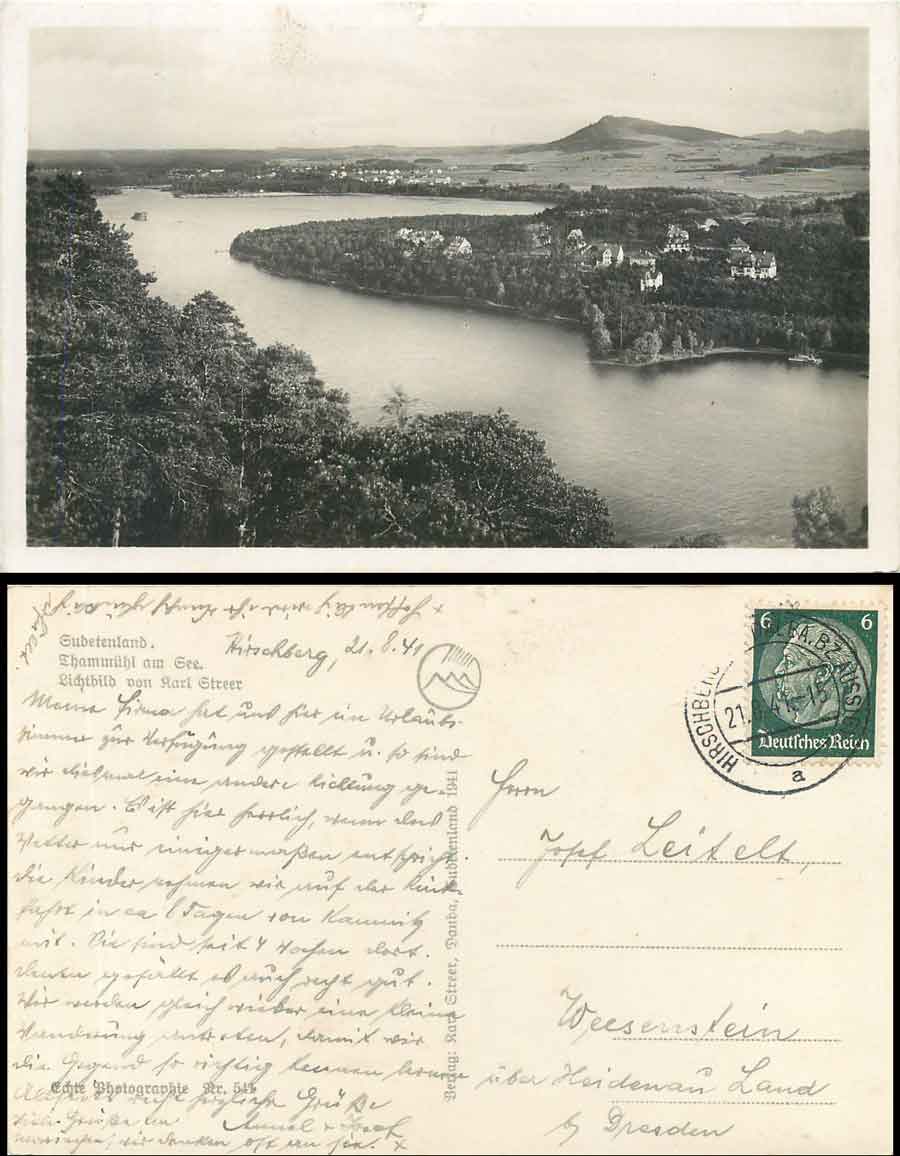 Sudetenland.
Thammühl am See.
Lichtbild von Karl Streer
Hirschberg, 21.8.41
Meine Firma hat uns hier ein Urlaubs-
zimmer zur Verfügung gestellt u. so sind
wir diesmal eine andere Richtung ge-
gangen. Es ist hier herrlich, wenn das
Wetter nur einigermaßen entspricht.
Die Kinder nehmen wir auf der Rück-
fahrt in ca 8 Tagen von Kamnitz
mit. Sie sind seit 4 Wochen dort.
Denen gefällt es auch recht gut.
Wir werden gleich wieder eine kleine
Wanderung antreten, damit wir
die Gegend so richtig kennen lernen
recht herzliche Grüße
Grüße an
wir denken oft an sie. x
Echte Photographie Nr. 541
Verlag: Karl Streer, Dauba, Sudetenland 1941
HIRSCHBERG
21. 41.-15
a
6 6
Deutsches Reich
Herrn
Josef Leitelt,
Weesenstein
über Heidenau Land
b/ Dresden